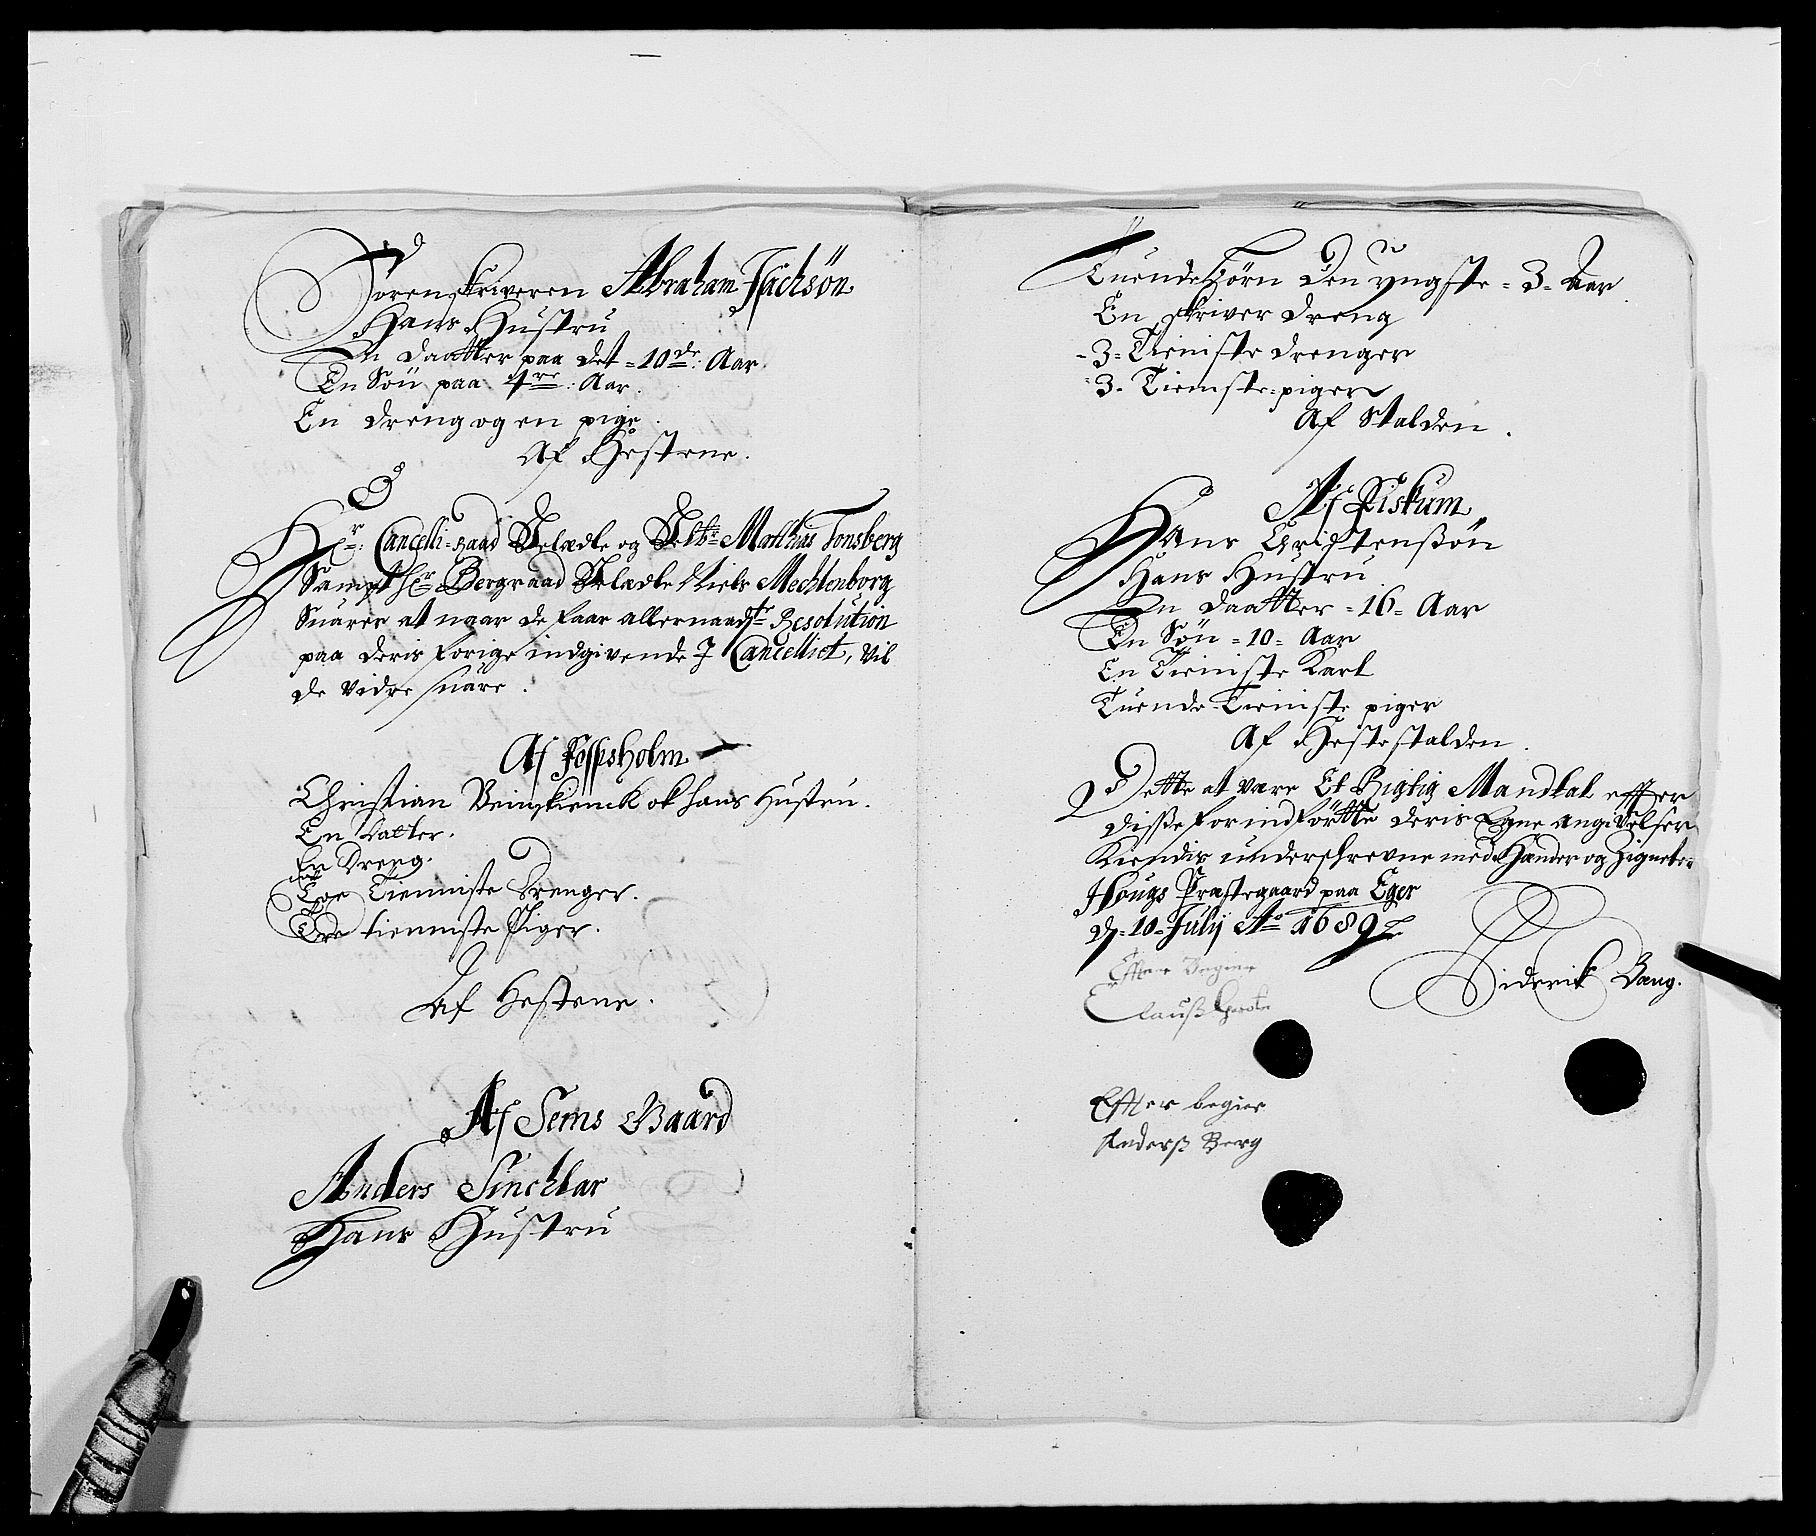 Sorenskriveren Abraham Jachsøn
Hans Hustru
En daatter paa det = 10de: Aar
En Søn paa 4re: Aar.
En dreng og en pige
Af Hestene.
Hr: Cancelli-Raad Velædle og Velbr Matthias Tonsberg
Sampt Hr Bergraad Velædle Niels Mechlenborg
Suarer at naar de faar allernaadste Resolution
paa deris forige indgivende J Cancelliet, vil
de vidre suare.
Af Fossesholm
Christian Veinskienck ok hans Hustru.
En datter.
En Dreng.
Toe Tienniste Drenger.
Tre tienniste Piger.
Af Hestene.
Af Sems Gaard
Anders Sinchlar
Hans Hustru
Tuende Børn den yngste = 3 = Aar
En skriver dreng
= 3 = Tieniste drenger
= 3 = Tieniste-piger
Af Stalden.
Af Fiskum
Hans Christenßøn
Hans Hustru
En daatter = 16 = Aar
En Søn = 10 = Aar
En Tieniste Karl
Tuende Tieniste piger
Af Hestestalden.
Dette at være Et Rigtig Mandtal effter
disse forindførte deris Egne angivelser
Kiendis underschrevne med Hænder og Zigneter
Hougs Præstegaard paa Eger
d. 10 Julij Ao 1689
Diderik Bang.
Effter Begier
Clauß
Effter begier
Anderß Berg